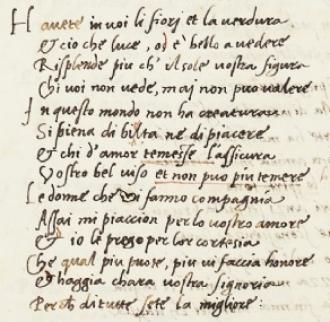 Havete in voi li fiori et la verdura
Et cio che luce, od è bello a vedere
Risplende piu ch' il sole vostra figura
Chi voi non vede, mai non puo valere
In questo mondo non ha creatura
Si piena di bilta ne di piacere
Et chi d'amor temesse l'assicura
Vostro bel viso et non puo piu temere
Le donne che vi fanno compagnia
Assai mi piaccion per lo vostro amore
Et io le prego per lor cortesia
Che qual piu puote, piu vi faccia honore
Et haggia chara vostra signoria
Perch di tutte sete la migliore.